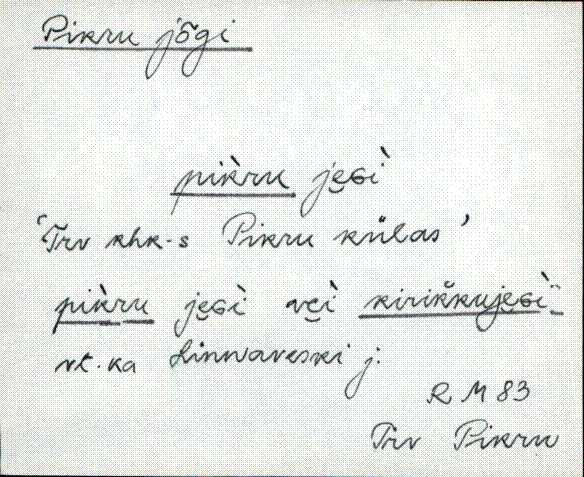 Pikru jõgi
pikru je̮Gì
'Trv khk-s Pikru külas'
pikru je̮Gì ve̮ì kirikkuje̮Gì
vt. ka Linnaveski j.
R M 83
Trv Pikru